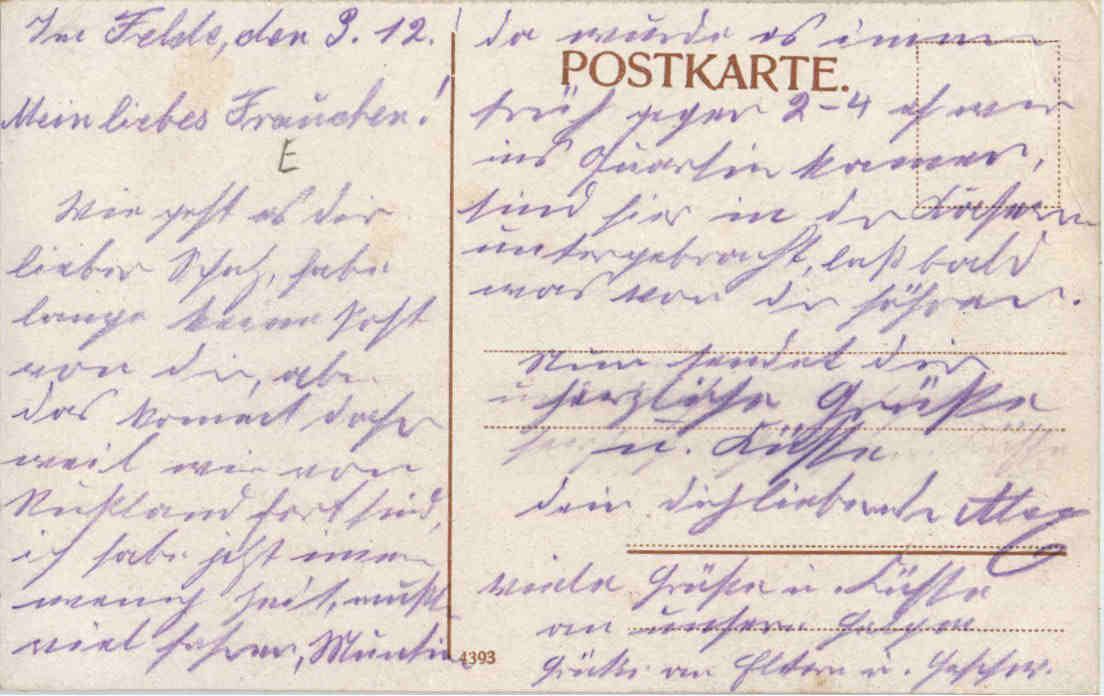 Im Felde, den 9. 12.
Mein liebes Frauchen!
E
Wie geht es dir
lieber Schatz, habe
lange keine Post
von dir, aber
das kommt daher
weil wir von
Rußland fort sind,
ich habe jetzt immer
wenig Zeit, mußt
viel fahren,
da wurde es immer
POSTKARTE.
früh gegen 2-4 eh wir
ins Quartier kamen,
sind hier in der Kaserne
untergebracht, laß bald
was von dir höhren.
Nun sendet dir
u herzliche Grüße
u. Küsse
dein dichliebender
viele Grüße u. Küsse
an unsern
Grüße an Eltern u. Geschw.
4393